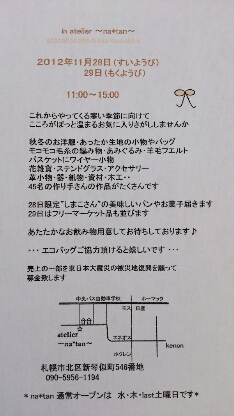 in atelier ～na*tan～
2012年11月28日(すいようび)
29日(もくようび)
11:00～15:00
これからやってくる寒い季節に向けて
こころがぽっと温まるお気に入りさがししませんか
秋冬のお洋服・あったか生地の小物やバッグ
モコモコ毛糸の編み物・あみぐるみ・羊毛フエルト
バスケットにワイヤー小物
花雑貨・ステンドグラス・アクセサリー
革小物・器・紙物・資材・木工・・
45名の作り手さんの作品がたくさんです
28日限定"しまこさん"の美味しいパンやお菓子届きます
29日はフリーマーケット品も並びます
あたたかなお飲み物用意してお待ちしております♪
・・・エコバッグご協力頂けると嬉しいです・・・
売上の一部を東日本大震災の被災地復興を願って
募金致します
中央バス自動車学校
ホーマック
atelier
～na*tan～
ホクレン
kenon
札幌市北区新琴似町546番地
090-5956-1194
*na*tan 通常オープンは 水・木・last土曜日です*